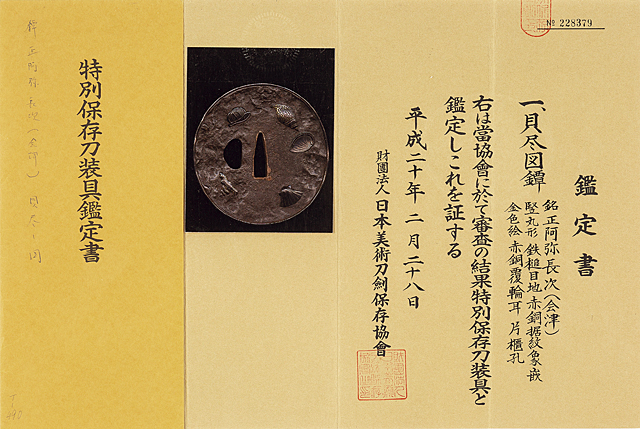 № 228379
鑑定書
一、貝尽図鐔
銘正阿弥長次(会津)
竪丸形 鉄槌目地 赤銅据紋象嵌
金色絵 赤銅覆輪耳 片櫃孔
右は當協會に於て審査の結果特別保存刀装具と
鑑定しこれを証する
平成二十年 二月 二十八日
財團法人 日本美術刀劍保存協會
特別保存刀装具鑑定書
正阿弥長次(会津) 貝尽し図